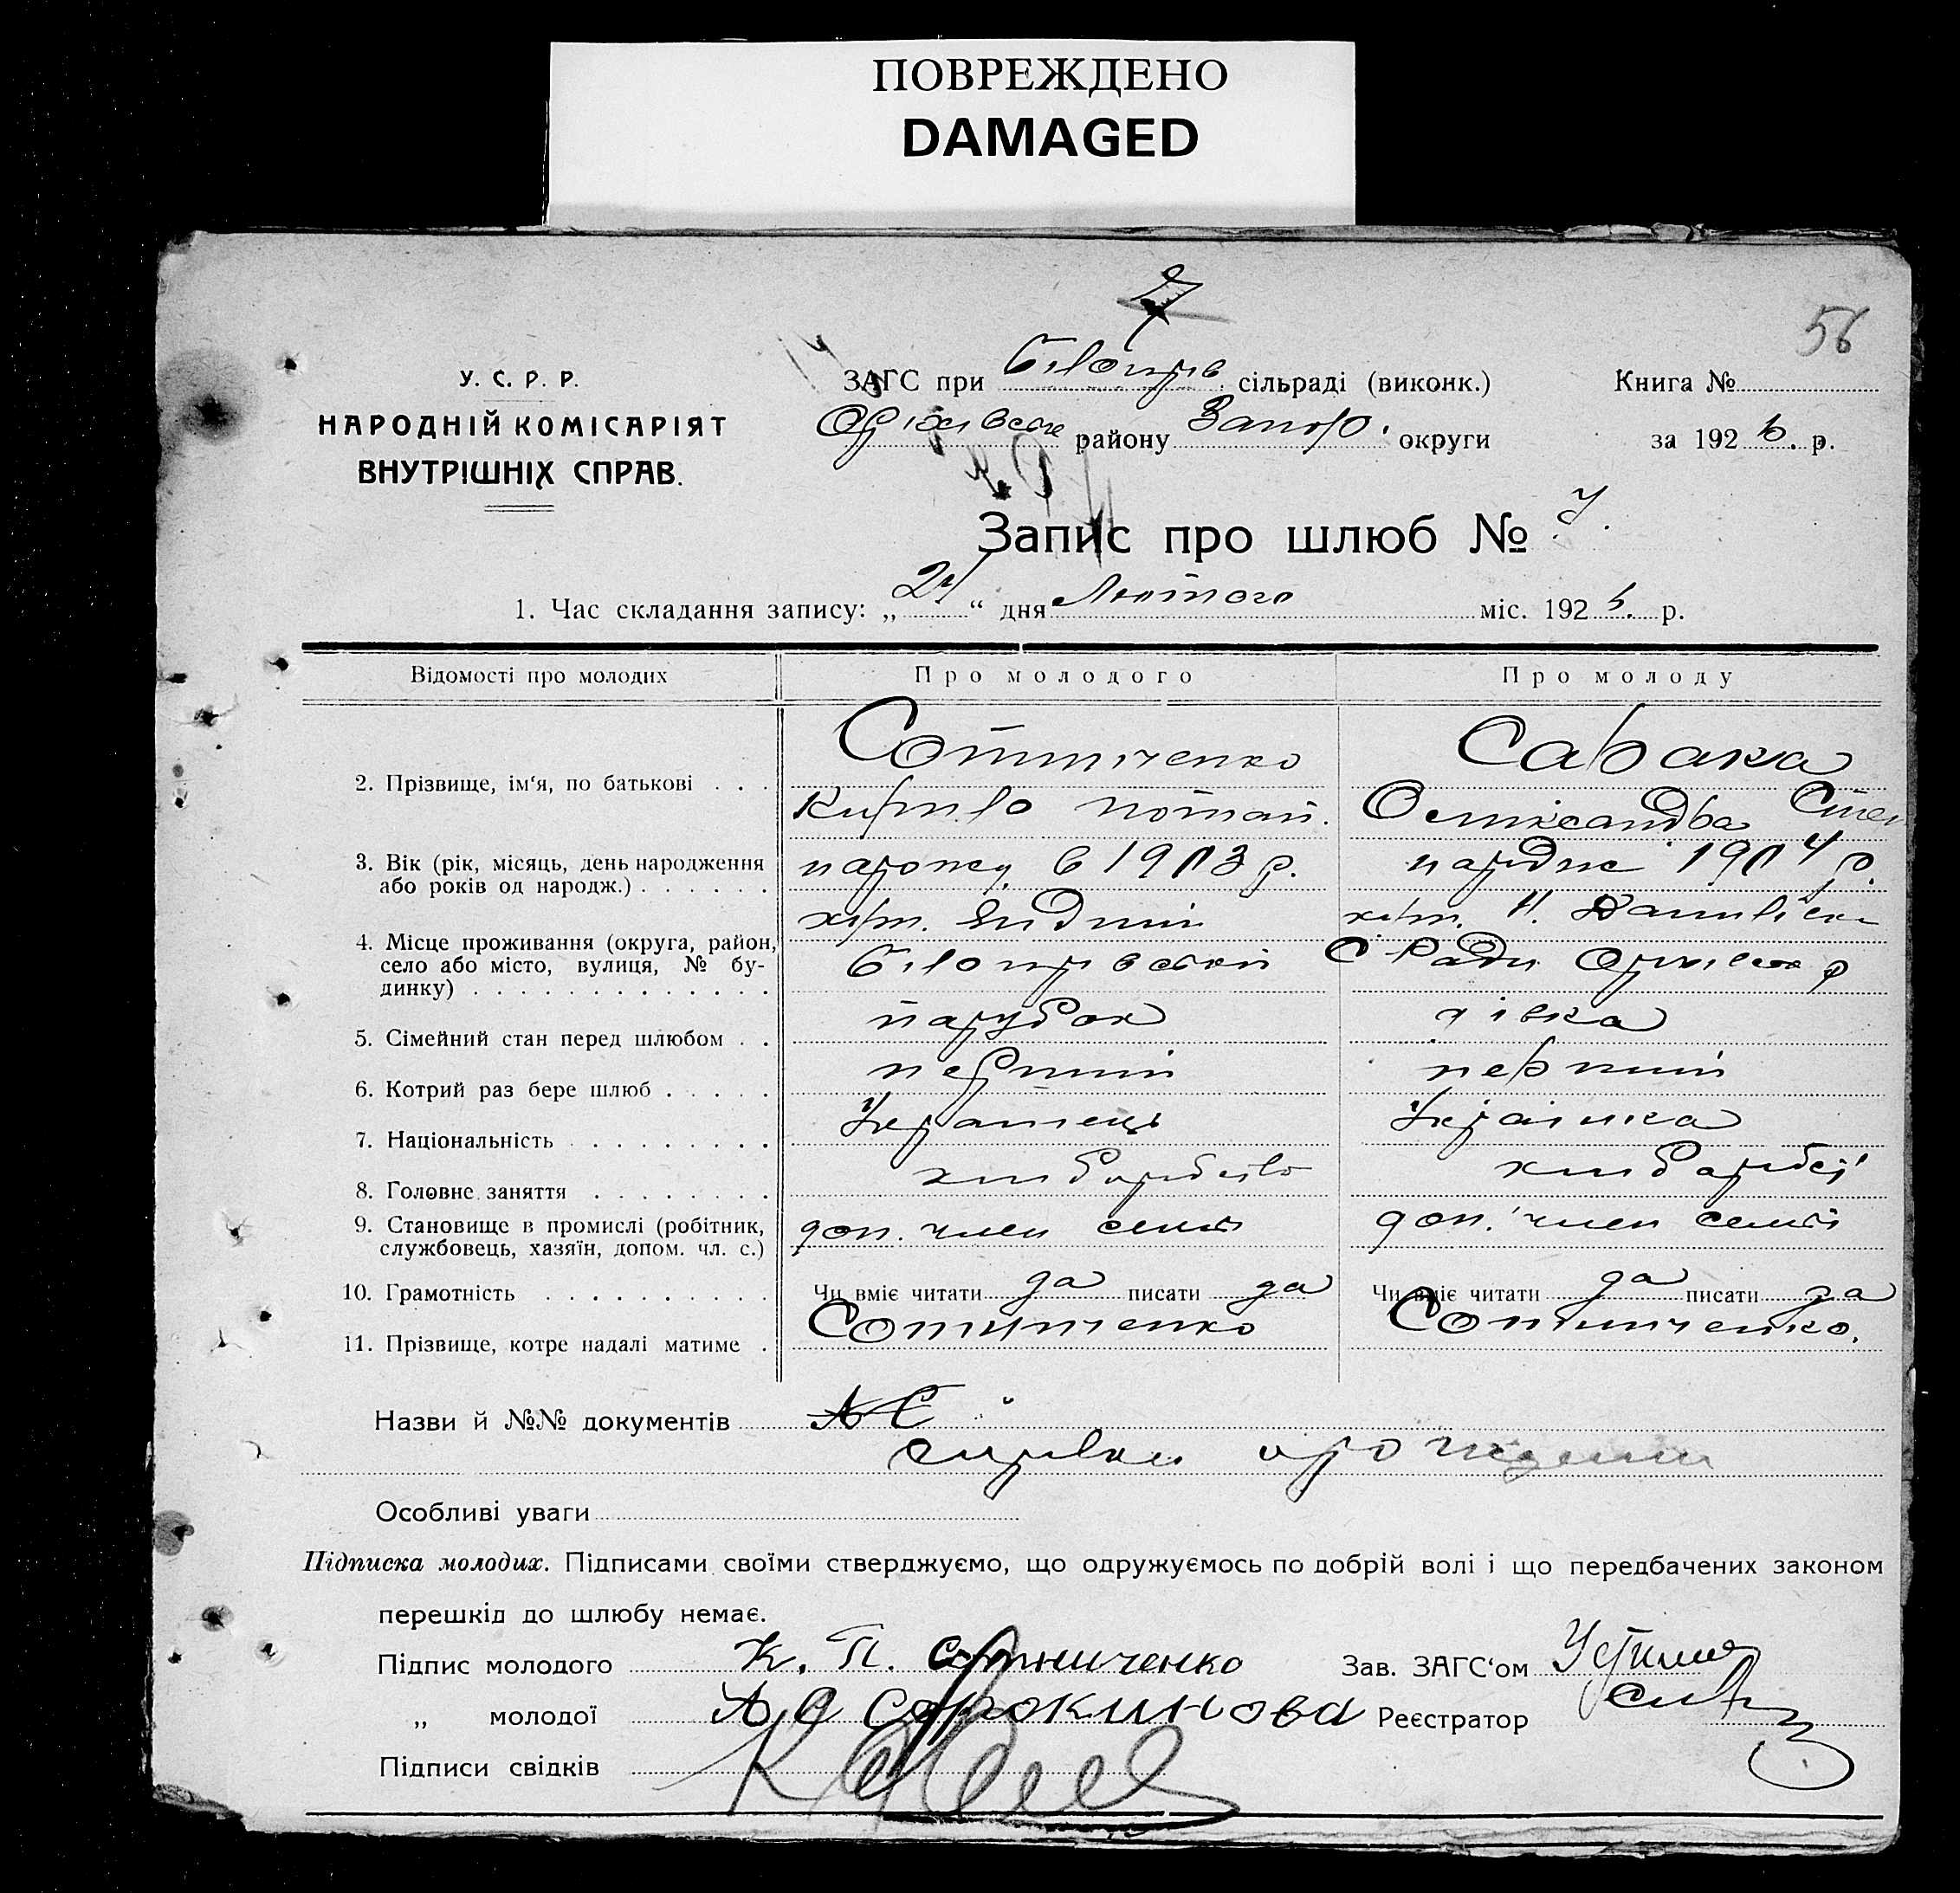 ПОВРЕЖДЕНО
DAMAGED
7
56
У. С. Р. Р.
НАРОДНІЙ КОМІСАРІЯТ
ВНУТРІШНІХ СПРАВ.
ЗАГС при сільраді (виконк.)
району Запор. округи
Книга №
за 192 р.
Запис про шлюб № 7.
1. Час складання запису: „ “ дня Лютого міс. 192 р.
Відомості про молодих Про молодого Про молоду
2. Прізвище, ім‘я, по батькові . . .
Сотниченко
Кирило
Олександра Степ
3. Вік (рік, місяць, день народження
або років од народж.) . . . . . .
1903 р.
1904 р.
4. Місце проживання (округа, район,
село або місто, вулиця, № бу-
динку) . . . . . . . . . . . . .
хут.
хут. Н.
С Ради
5. Сімейний стан перед шлюбом . .
парубок
дівка
6. Котрий раз бере шлюб . . . . .
перший
перший
7. Національність . . . . . . . . .
Українець
Українка
8. Головне заняття . . . . . . . .
9. Становище в промислі (робітник,
службовець, хазяїн, допом. чл. с.)
доп. член семьї
доп. член семьї
10. Грамотність . . . . . . . . . .
Чи вміє читати да писати да
Чи вміє читати да писати да
11. Прізвище, котре надалі матиме .
Сотниченко
Сотниченко.
Назви й №№ документів
Особливі уваги
Підписка молодих. Підписами своїми стверджуємо, що одружуємось по добрій волі і що передбачених законом
перешкід до шлюбу немає.
Підпис молодого К. П. Сотниченко Зав. ЗАГС‘ом
„ молодої А С Сорокинова Реєстратор
Підписи свідків